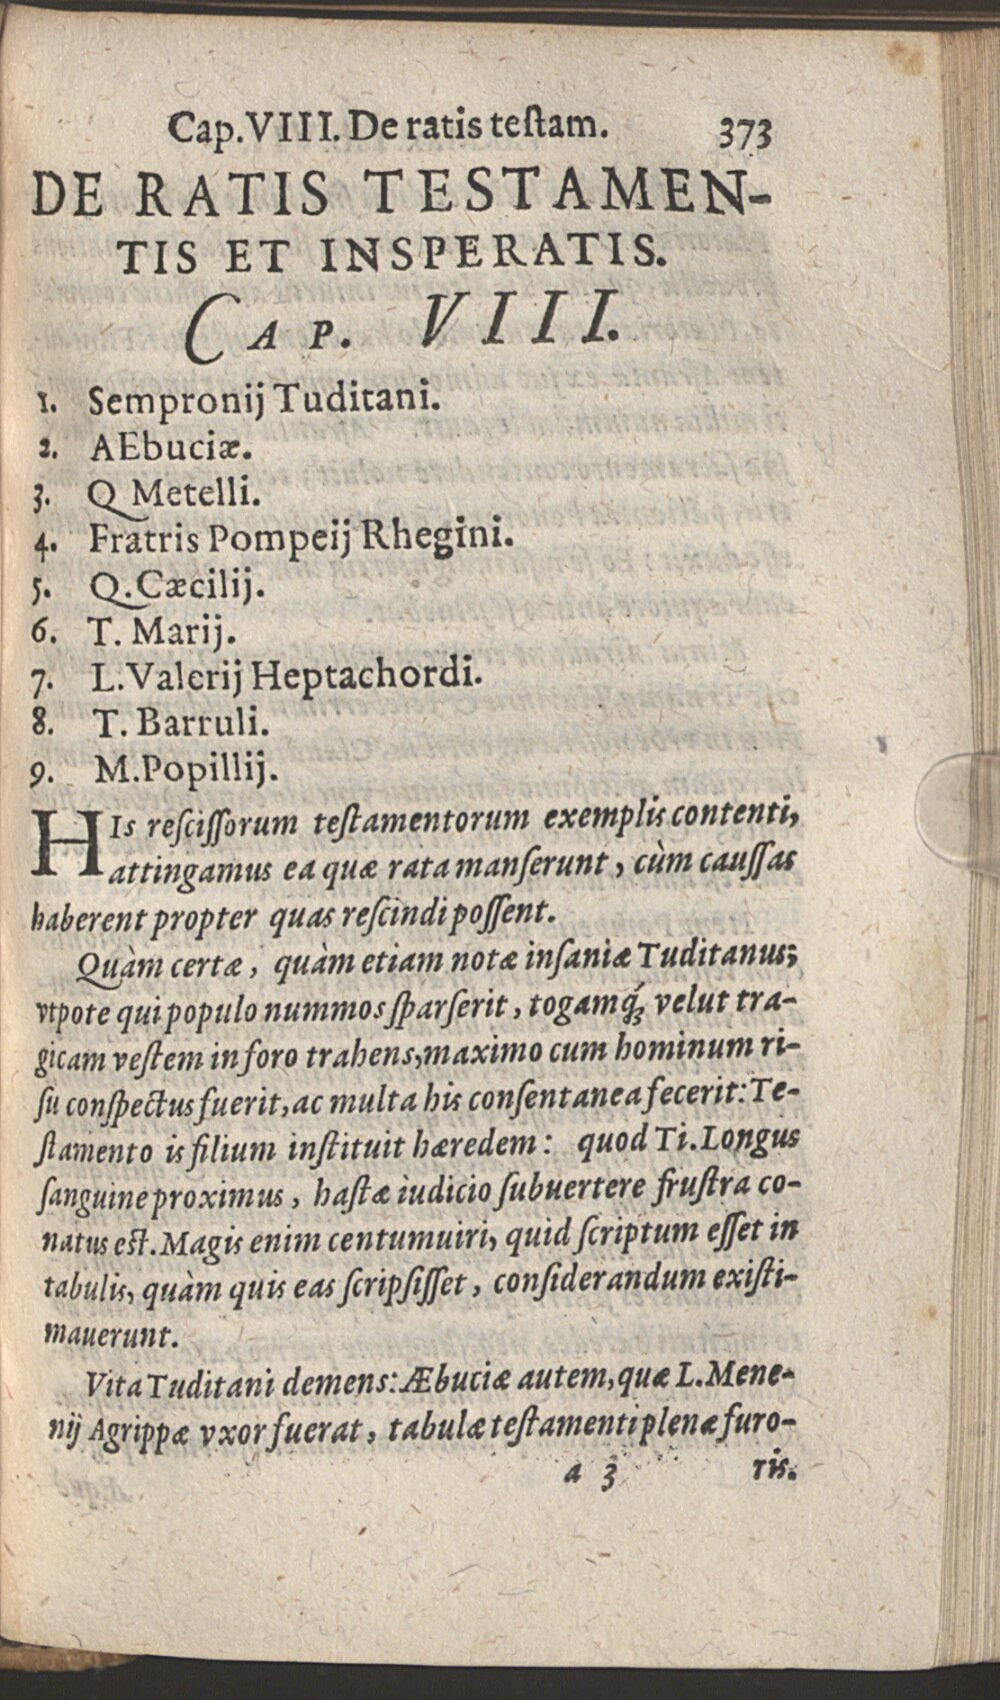 Cap.VIII. De ratis teſtam. 373
DE RATIS TESTAMEN-
TIS ET INSPERATIS.
CAP. VIII.
1. Sempronij Tuditani.
2. AEbuciæ.
3. Q Metelli.
4. Fratris Pompeij Rhegini.
5. Q. Cæcilij.
6. T. Marij.
7. L. Valerij Heptachordi.
8. T. Barruli.
9. M. Popillij.
HIs reſciſſorum teſtamentorum exemplis contenti,
attingamus ea quæ rata manſerunt, cùm cauſſas
haberent propter quas reſcindi poſſent.
Quàm certæ, quàm etiam notæ inſaniæ Tuditanus;
vtpote qui populo nummos ſparſerit, togamq́; velut tra-
gicam veſtem in foro trahens, maximo cum hominum ri-
ſu conſpectus fuerit, ac multa his conſentanea fecerit: Te-
ſtamento is filium inſtituit hæredem: quod Ti. Longus
ſanguine proximus, haſtæ iudicio ſubuertere fruſtra co-
natus eſt. Magis enim centumuiri, quid ſcriptum eſſet in
tabulis, quàm quis eas ſcripſiſſet, conſiderandum exiſti-
mauerunt.
Vita Tuditani demens: Æbuciæ autem, quæ L. Mene-
nij Agrippæ vxor fuerat, tabulæ teſtamenti plenæ furo-
a 3 ris.